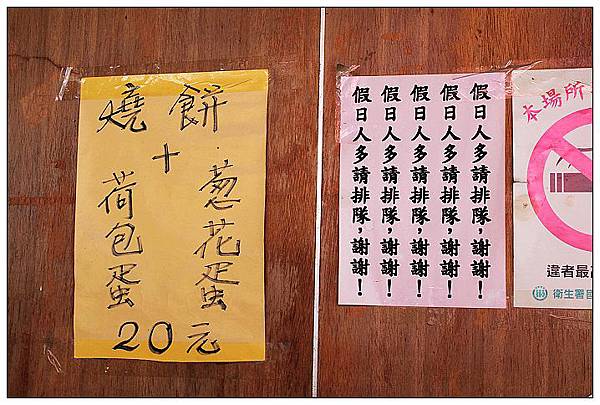 燒餅
+
蔥花蛋
荷包蛋
20元
假日人多請排隊，謝謝！
假日人多請排隊，謝謝！
假日人多請排隊，謝謝！
假日人多請排隊，謝謝！
假日人多請排隊，謝謝！
本場所
違者最
衛生署